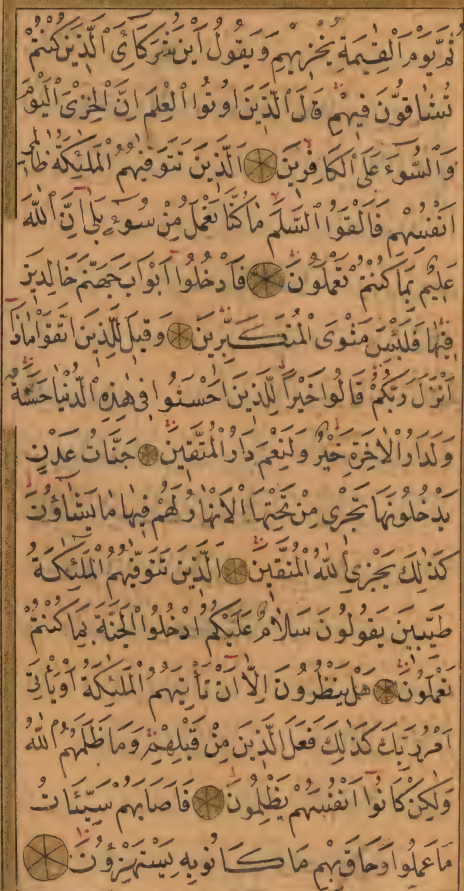 ثُمَّ يَوْمَ الْقِيٰمَةِ يُخْزِيهِمْ وَيَقُولُ اَيْنَ شُرَكَآئِىَ الَّذِينَ كُنْتُمْ
تُشَاقُّونَ فِيهِمْ قَالَ الَّذِينَ اُوتُوا الْعِلْمَ اِنَّ الْخِزْىَ الْيَوْمَ
وَالسُّوٓءَ عَلَى الْكَافِرِينَ الَّذِينَ تَتَوَفّٰيهُمُ الْمَلٰٓئِكَةُ ظَالِمِى
اَنْفُسِهِمْ فَاَلْقَوُا السَّلَمَ مَا كُنَّا نَعْمَلُ مِنْ سُوٓءٍ بَلٰى اِنَّ اللّٰهَ
عَلِيمٌ بِمَا كُنْتُمْ تَعْمَلُونَ فَادْخُلُوٓا اَبْوَابَ جَهَنَّمَ خَالِدِينَ
فِيهَا فَلَبِئْسَ مَثْوَى الْمُتَكَبِّرِينَ وَقِيلَ لِلَّذِينَ اتَّقَوْا مَاذَٓا
اَنْزَلَ رَبُّكُمْ قَالُوا خَيْرًا لِلَّذِينَ اَحْسَنُوا فِى هٰذِهِ الدُّنْيَا حَسَنَةٌ
وَلَدَارُ الْاٰخِرَةِ خَيْرٌ وَلَنِعْمَ دَارُ الْمُتَّقِينَ جَنَّاتُ عَدْنٍ
يَدْخُلُونَهَا تَجْرِى مِنْ تَحْتِهَا الْاَنْهَارُ لَهُمْ فِيهَا مَا يَشَآؤُنَ
كَذٰلِكَ يَجْزِى اللّٰهُ الْمُتَّقِينَ الَّذِينَ تَتَوَفّٰيهُمُ الْمَلٰٓئِكَةُ
طَيِّبِينَ يَقُولُونَ سَلَامٌ عَلَيْكُمُ ادْخُلُوا الْجَنَّةَ بِمَا كُنْتُمْ
تَعْمَلُونَ هَلْ يَنْظُرُونَ اِلَّٓا اَنْ تَاْتِيَهُمُ الْمَلٰٓئِكَةُ اَوْ يَاْتِىَ
اَمْرُ رَبِّكَ كَذٰلِكَ فَعَلَ الَّذِينَ مِنْ قَبْلِهِمْ وَمَا ظَلَمَهُمُ اللّٰهُ
وَلٰكِنْ كَانُوٓا اَنْفُسَهُمْ يَظْلِمُونَ فَاَصَابَهُمْ سَيِّئَاتُ
مَا عَمِلُوا وَحَاقَ بِهِمْ مَا كَانُوا بِهِ يَسْتَهْزِؤُنَ